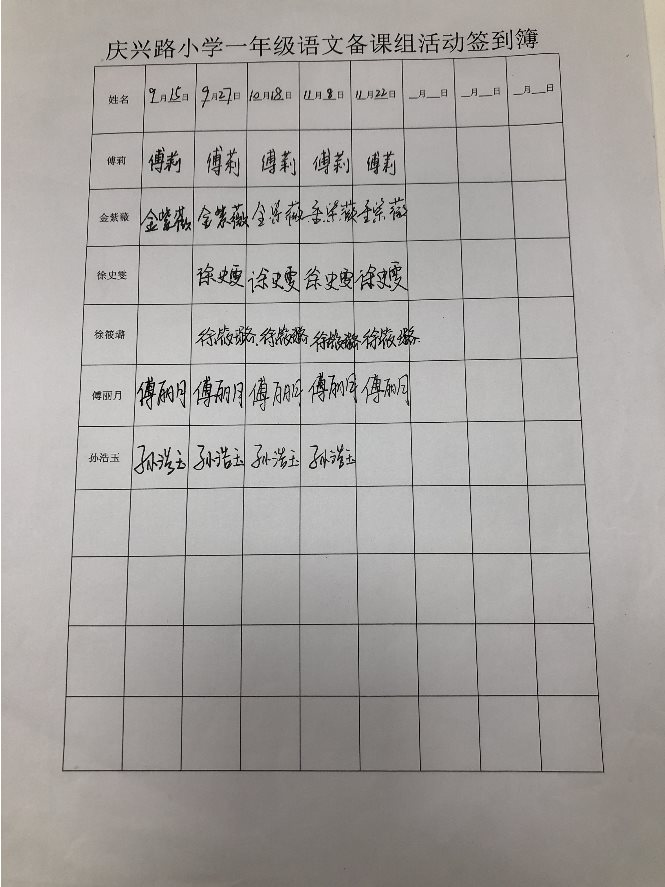 庆兴路小学一年级语文备课组活动签到簿
姓名 9月15日 9月27日 10月18日 11月8日 11月22日 __月__日 __月__日 __月__日
傅莉 傅莉 傅莉 傅莉 傅莉 傅莉
金紫薇 金紫薇 金紫薇 金紫薇 金紫薇 金紫薇
徐史雯 徐史雯 徐史雯 徐史雯 徐史雯
徐筱璐 徐筱璐 徐筱璐 徐筱璐 徐筱璐
傅丽月 傅丽月 傅丽月 傅丽月 傅丽月 傅丽月
孙浩玉 孙浩玉 孙浩玉 孙浩玉 孙浩玉